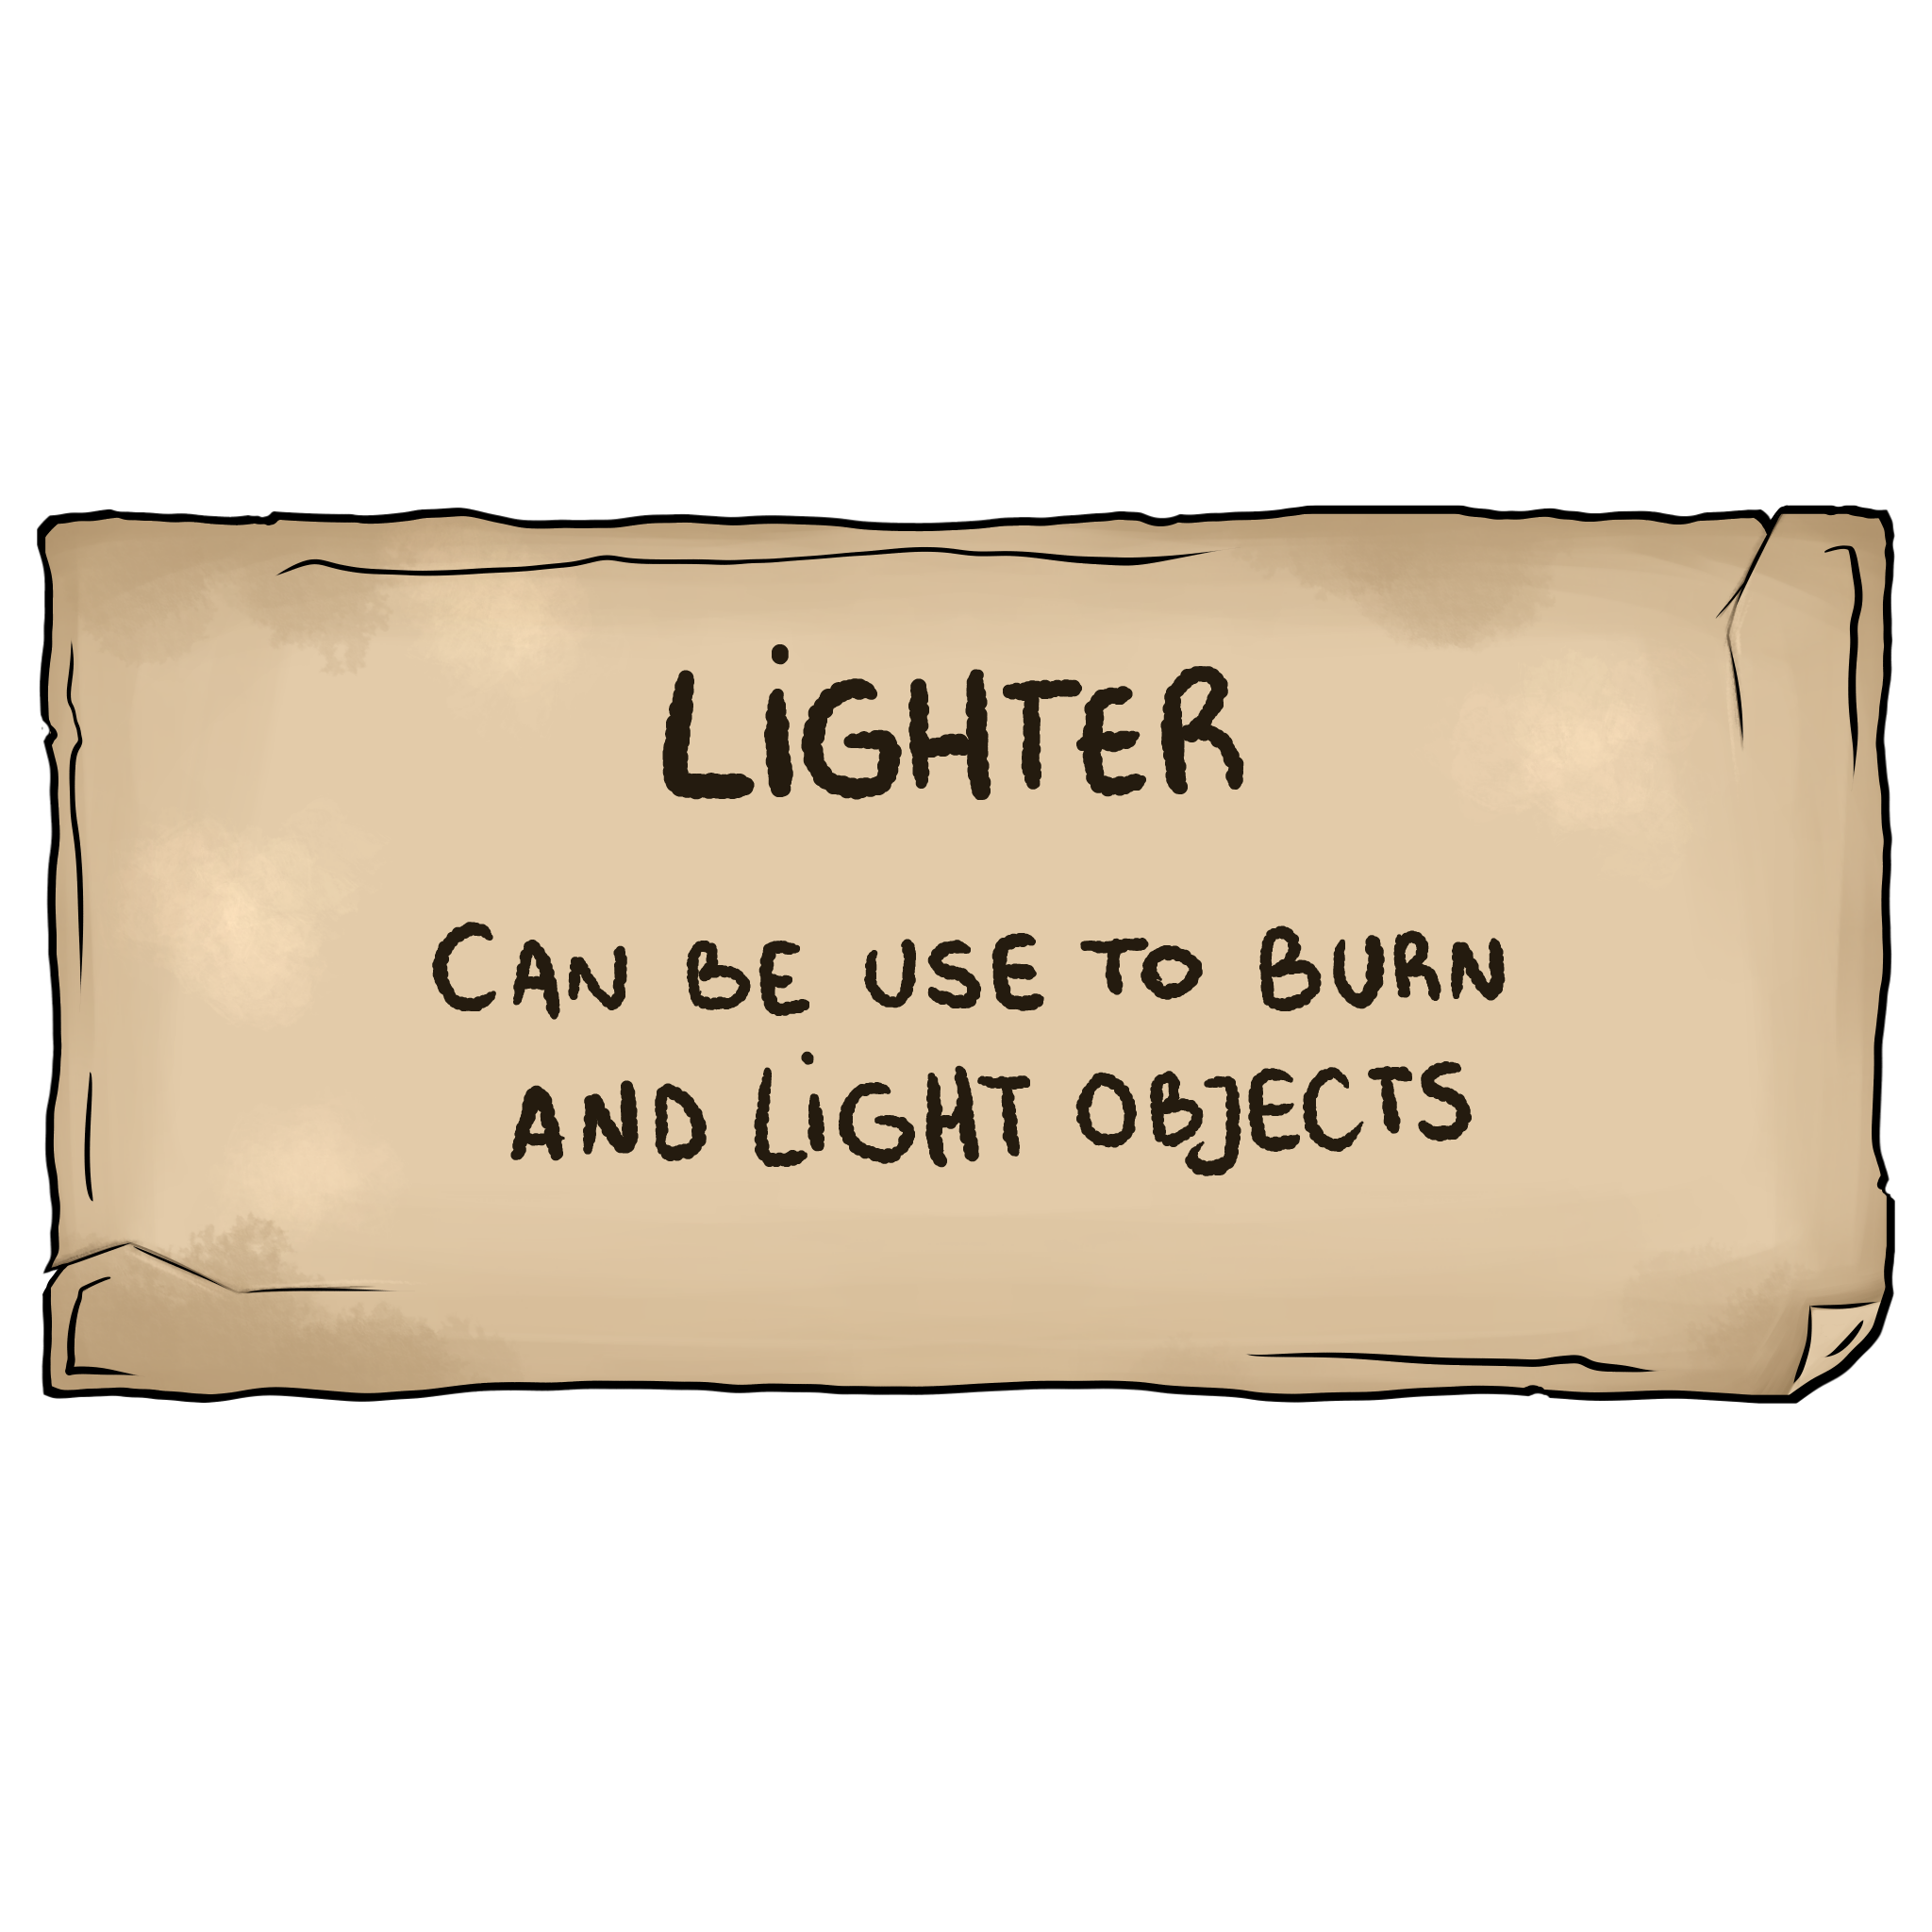 LiGHTER
CAN BE USE TO BURN
AND LiGHT OBJECTS